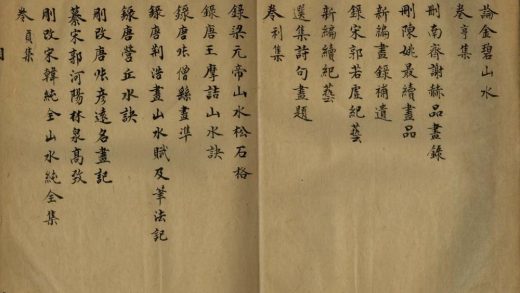 論金碧山水
卷亨集
刪南齊謝赫品畫錄
刪陳姚最續畫品
新編畫錄補遺
錄宋郭若虛紀藝
新編續紀藝
選集詩句畫題
卷利集
錄梁元帝山水松石格
錄唐王摩詰山水訣
錄唐張僧繇畫準
錄唐荊浩畫山水賦及筆法記
錄唐營丘水訣
刪改唐張彥遠名畫記
纂宋郭河陽林泉高致
刪改宋韓純全山水純全集
卷貞集